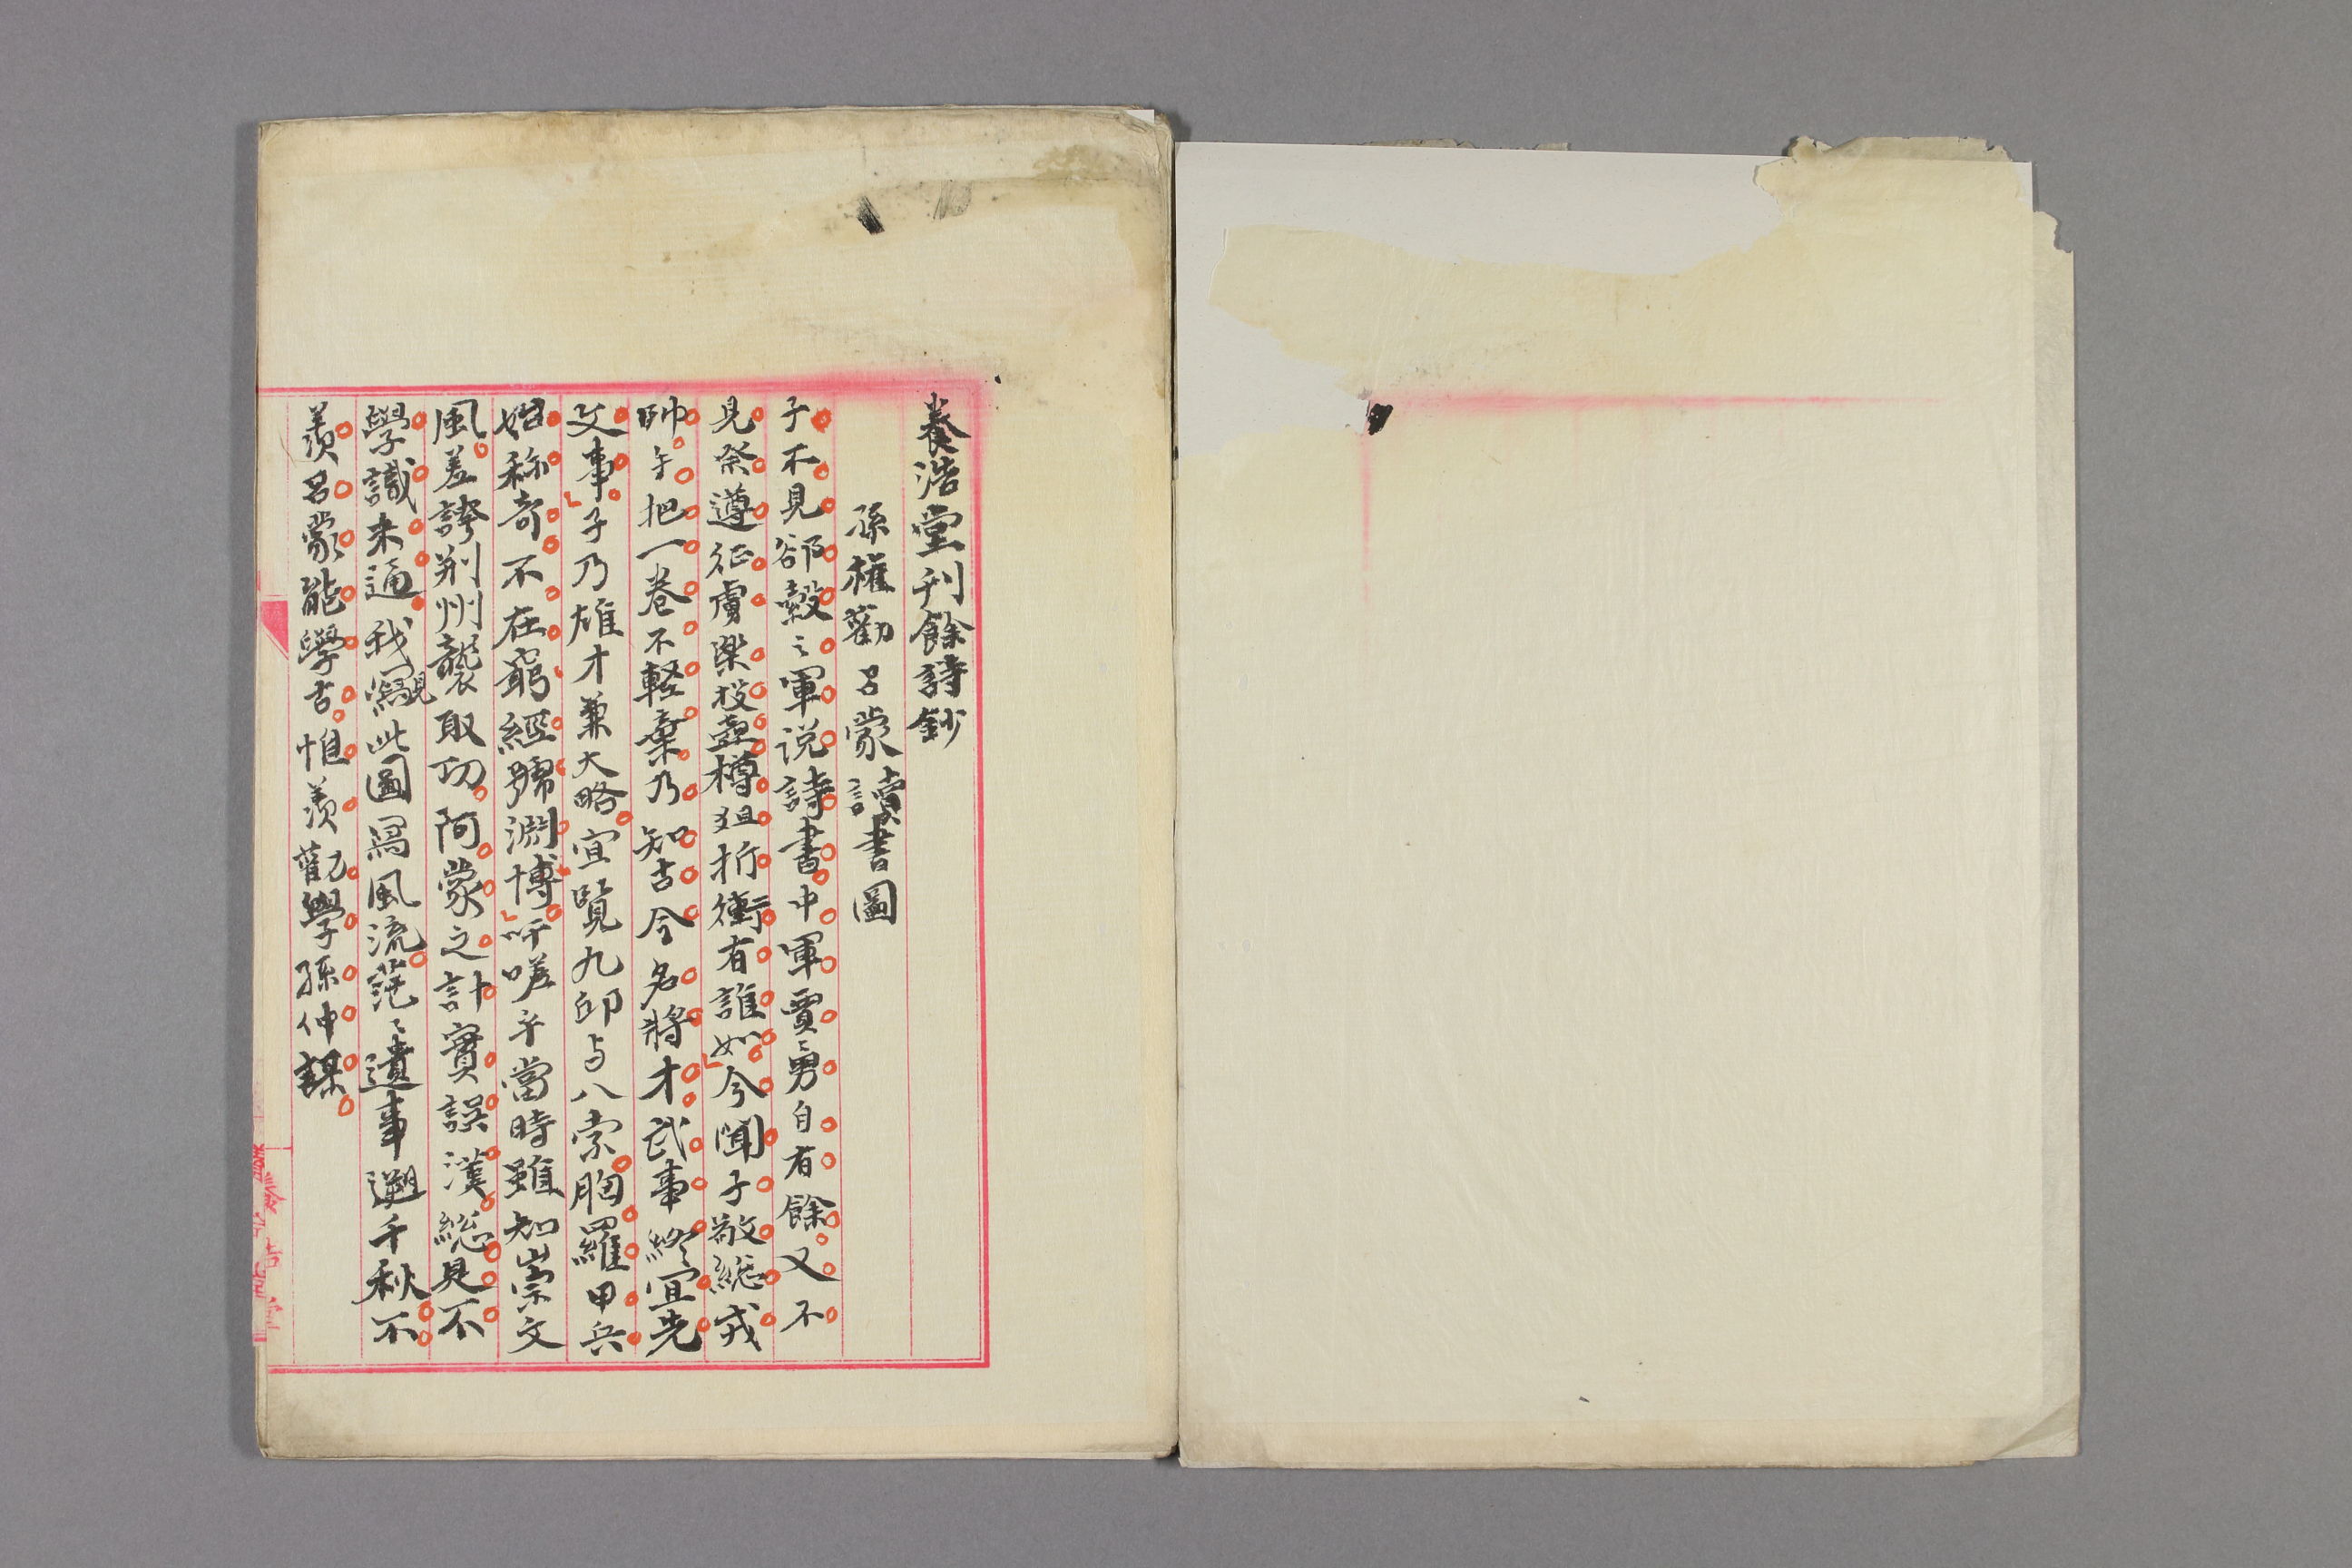 養浩堂刊餘詩鈔
孫權勸呂蒙讀書圖
子不見郤縠々軍説詩書中軍賈勇自有餘又不
見祭遵征虜梁投壺樽俎折衝有誰如今聞子敬総戎
帥手把一卷不輕棄乃知古今名將才武事終宜先
文事子乃雄才兼大略宜覽九邱与八索胸羅甲兵
始称奇不在窮經號淵博吁嗟乎當時雖知崇文
風羞誇荊州襲取功阿蒙之計實誤漢総是不
學識来逼我觀此圖寫風流茫々遺事遡千秋不
羨呂蒙能學古惟羨勸學孫仲謀
養浩堂